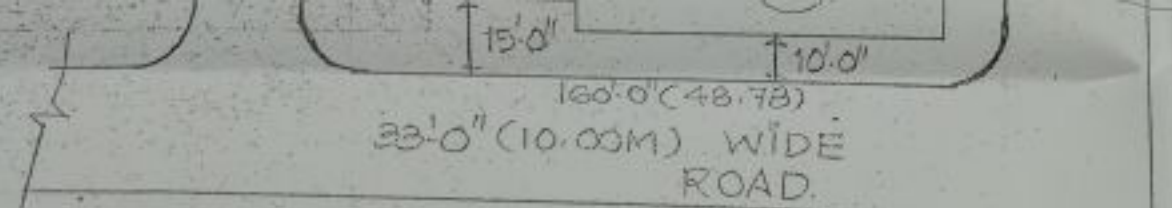 15'-0"
10'-0"
160'-0"(48.78)
33'-0" (10.00M) WIDE
ROAD.